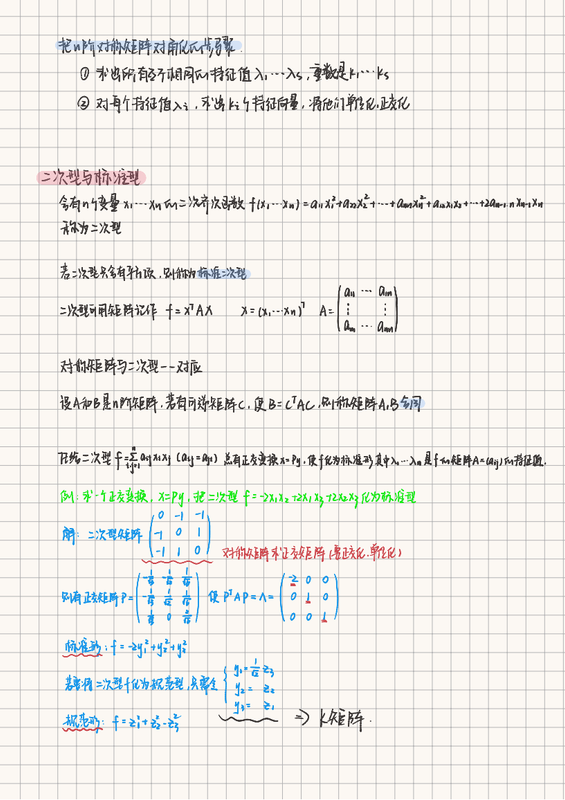 把n阶对称矩阵对角化的步骤
① 求出所有各不相同的特征值 λ₁…λs, 重数是k₁…ks
② 对每个特征值λi, 求出ki个特征向量, 将他们单位化.正交化
二次型与标准型
含有n个变量 x₁…xn 的二次齐次函数 f(x₁…xn) = a₁₁x₁²+a₂₂x₂²+…+annxn²+a₁₂x₁x₂+…+2an-1.nxn-1xn
称为二次型
若二次型只含有平方项, 则称为标准二次型
二次型可用矩阵记作 f=xᵀAX X=(x₁…xn)ᵀ A=
a₁₁ … a₁n
⋮ ⋮
an1 … ann
对称矩阵与二次型一一对应
设A和B是n阶矩阵, 若有可逆矩阵C, 使B=CᵀAC, 则称矩阵A,B合同
任给二次型 f=Σaijxixj (aij=aji) 总有正交变换 x=Py, 使f化为标准形 其中λ₁…λn 是f的矩阵A=(aij)的特征值.
例: 求一个正交变换, x=Py, 把二次型 f=-2x₁x₂+2x₁x₃+2x₂x₃化为标准型
0 -1 -1
解: 二次型矩阵 -1 0 1
-1 1 0
对称矩阵求正交矩阵(需正交化.单位化)
-1/√3 -1/√2 1/√6 -2 0 0
则有正交矩阵P= -1/√3 1/√2 1/√6 使 PᵀAP=Λ= 0 1 0
1/√3 0 2/√6 0 0 1
标准形: f=-2y₁²+y₂²+y₃²
y₁=1/√2 z₃
若要将二次型f化为规范型, 只需令 y₂= z₂
y₃= z₁
规范形: f=z₁²+z₂²-z₃²
⇒ K矩阵.